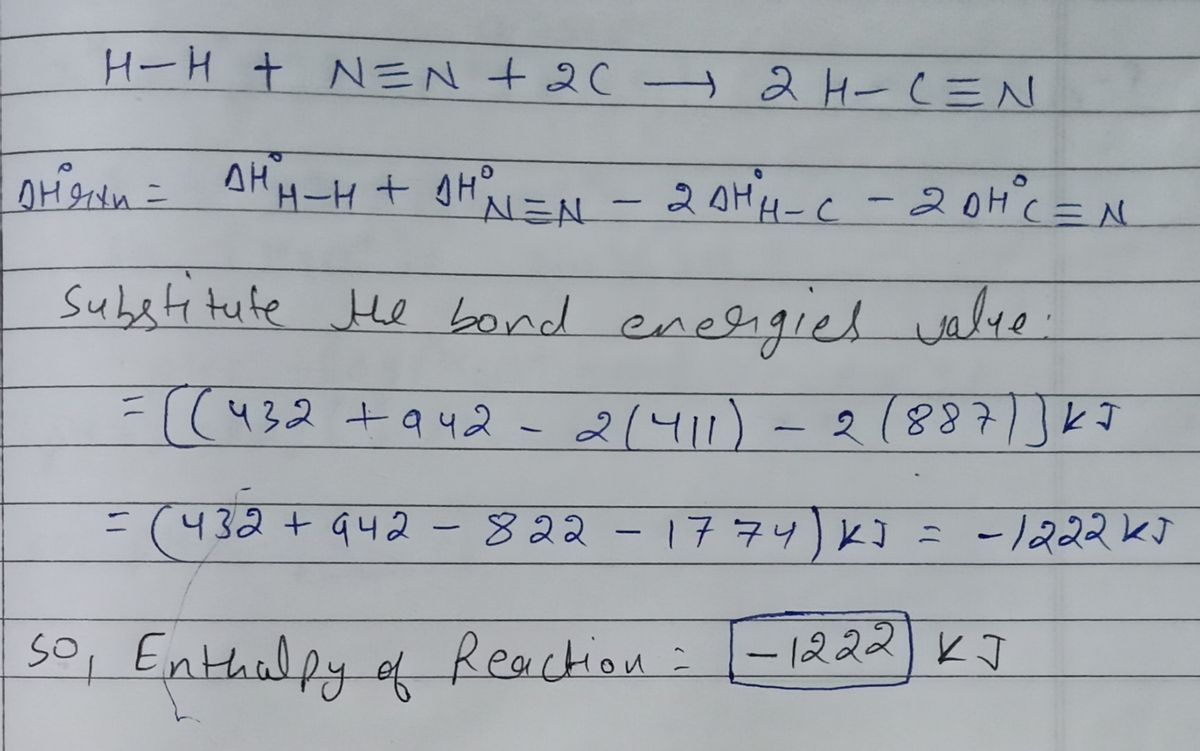 H—H + N≡N + 2C → 2 H—C≡N
ΔH°rxn = ΔH°H—H + ΔH°N≡N — 2 ΔH°H—C — 2 ΔH°C≡N
Substitute the bond energies value:
= [(432 + 942 — 2(411) — 2(887)] KJ
= (432 + 942 — 822 — 1774) KJ = —1222 KJ
so, Enthalpy of Reaction = —1222 KJ